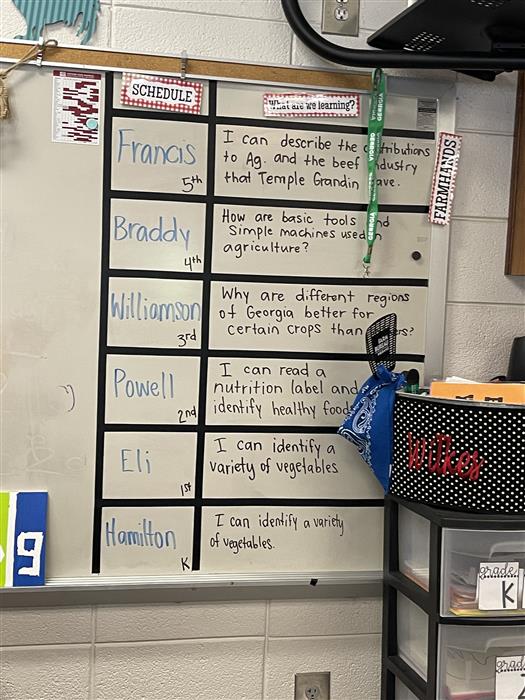 SCHEDULE
What are we learning?
Francis
5th
I can describe the
to Ag. and the beef industry
that Temple Grandin
FARMHANDS
GEORGIA
GEORGIA
GEORGIA
Braddy
4th
How are basic tools
Simple machines used
agriculture?
Williamson
3rd
Why are different regions
of Georgia better for
certain crops than
Powell
2nd
I can read a
nutrition label and
identify healthy food
Eli
1st
I can identify a
variety of vegetables
Hamilton
K
I can identify a variety
of vegetables.
Wilkes
9
grade
K
grade